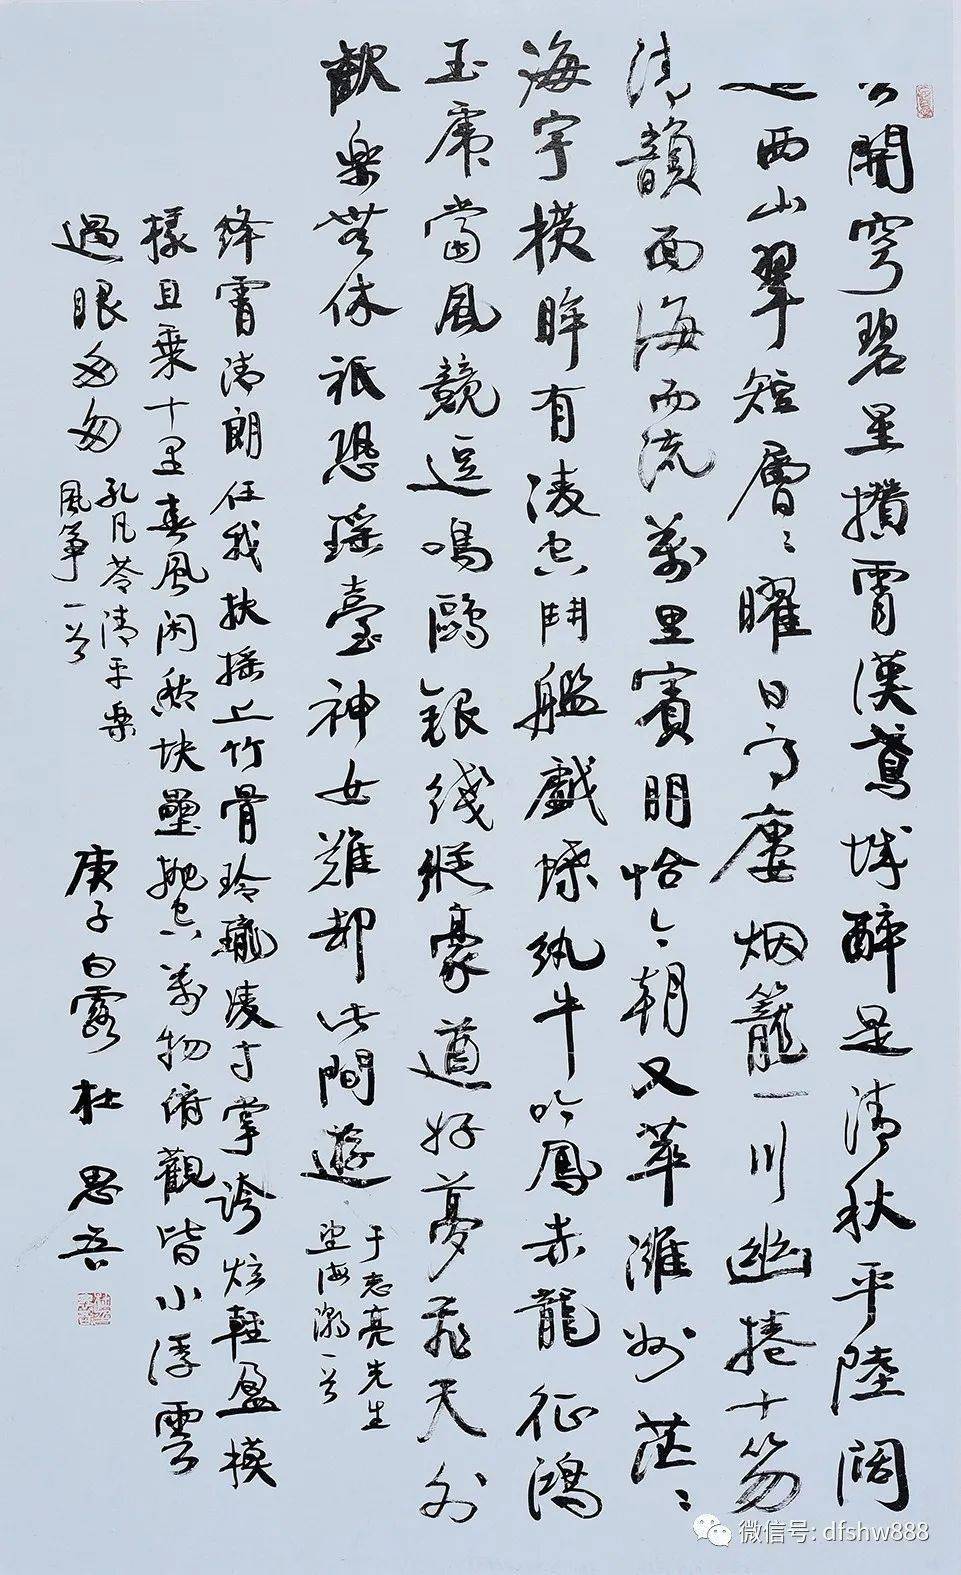 開穹碧星攢霄漢鳶城醉是清秋平陸闊
西山翠短層〻曜日高廔烟籠一川幽捲十笏
清韻面海而流萬里賓朋恰今朝又萃濰州茫〻
海宇橫眸有凌空鬥艦戲蝶紈牛吟鳳赤龍征鴻
玉虎當風競逗鳴鷗銀綫縱豪遒好夢飛天外
歡樂無休祇恐瑤臺神女難却此間遊
于志亮先生
望海潮一首
絳霄清朗任我扶搖上竹骨玲瓏凌寸掌誇炫輕盈模
樣且乘十里春風闲愁块壘抛空萬物俯觀皆小浮雲
過眼匆匆
孔凡苓清平樂
風箏一首
庚子白露杜思吾
微信号: dfshw888